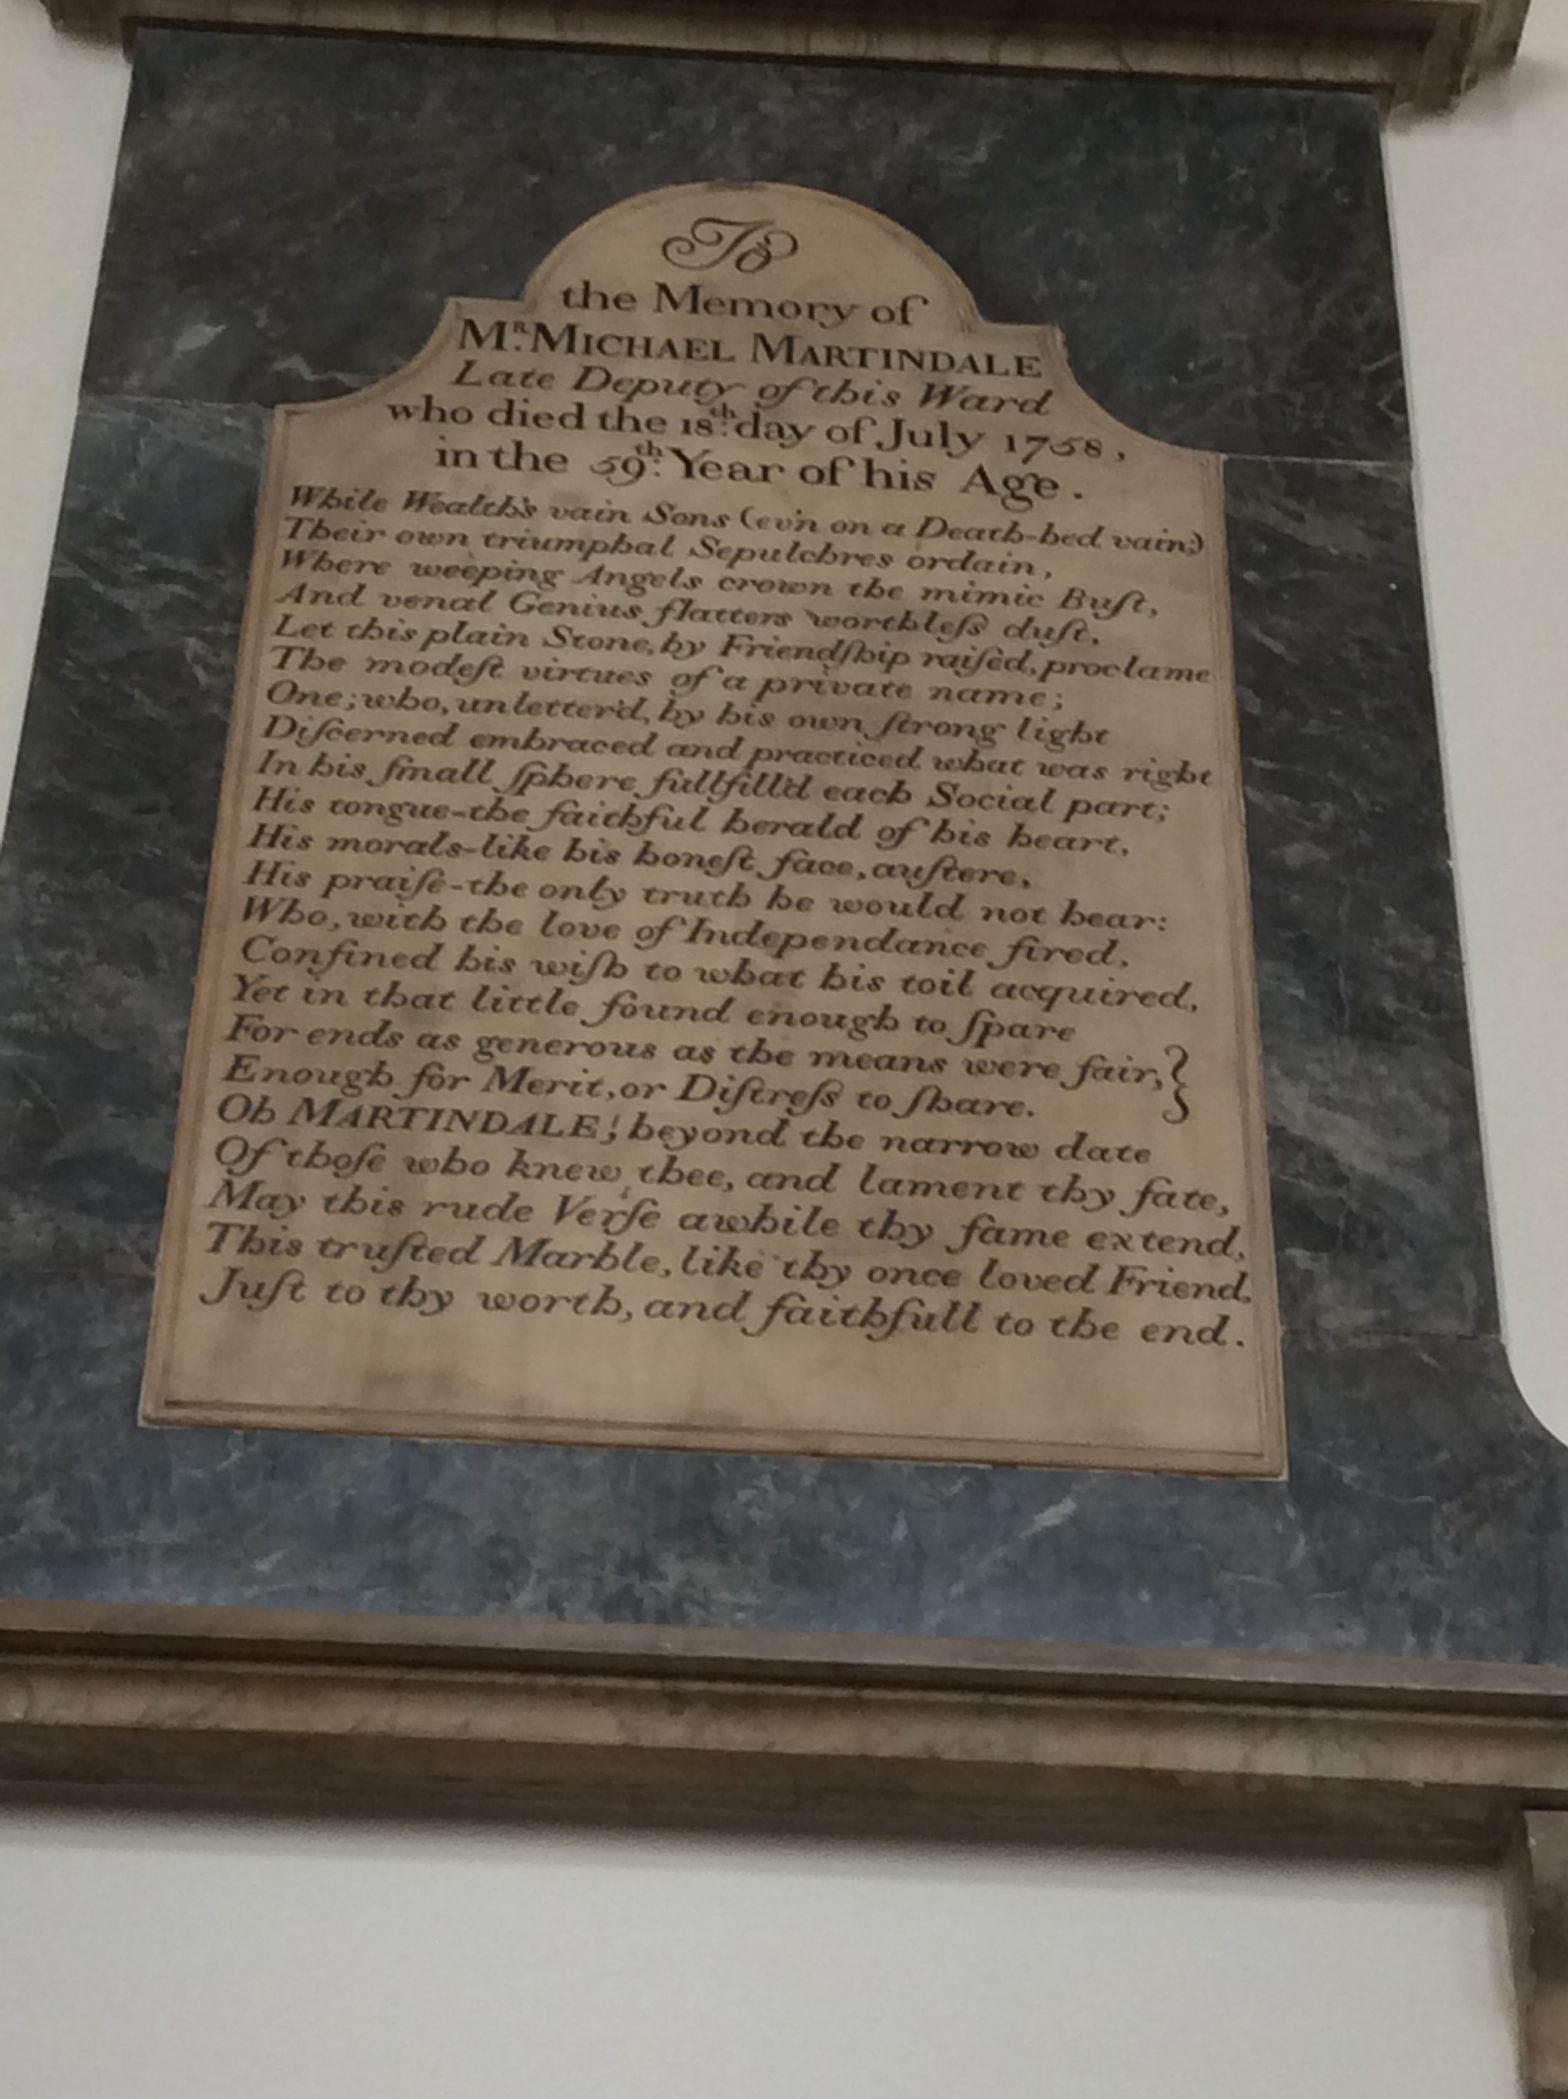 To
the Memory of
Mʀ. MICHAEL MARTINDALE
Late Deputy of this Ward
who died the 18th. day of July 1758,
in the 59th. Year of his Age.
While Wealth's vain Sons (ev'n on a Death-bed vain;)
Their own triumphal Sepulchres ordain,
Where weeping Angels crown the mimic Buſt,
And venal Genius flatters worthleſs duſt,
Let this plain Stone, by Friendſhip raiſed, proclame
The modeſt virtues of a private name;
One; who, unletter'd, by his own ſtrong light
Diſcerned embraced and practiced what was right
In his ſmall ſphere fullfill'd each Social part;
His tongue-the faithful herald of his heart,
His morals-like his honeſt face, auſtere,
His praiſe-the only truth he would not hear:
Who, with the love of Independance fired,
Confined his wiſh to what his toil acquired,
Yet in that little found enough to ſpare
For ends as generous as the means were fair, }
Enough for Merit, or Diſtreſs to ſhare.
Oh MARTINDALE! beyond the narrow date
Of thoſe who knew thee, and lament thy fate,
May this rude Verſe awhile thy fame extend,
This truſted Marble, like thy once loved Friend,
Juſt to thy worth, and faithfull to the end.